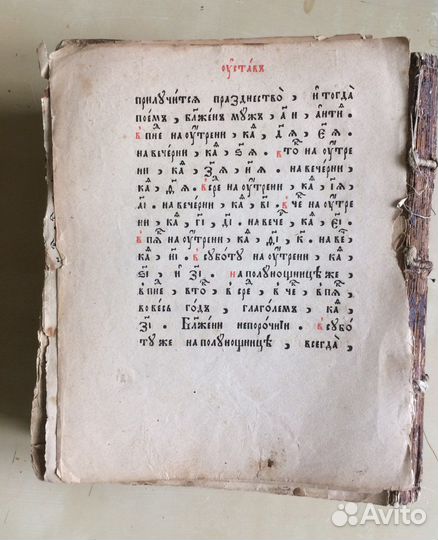 ᲂуⷭ҇та́въ
прилучи́тсѧ пра́зднество̀ , и҆ тогда̀
пое́мъ , бл҃же́нъ мꙋ́жъ , а҃ и , а҆нтїⷴ .
в пнⷣе на ᲂу҆́трени , каⷴ , д҃ѧ , є҃ѧ .
на вече́рни , каⷴ , ѕ҃ѧ . в тоⷬ на ᲂу҆́тре
ни , каⷴ , з҃ѧ , и҃ѧ . на вече́рни ,
каⷴ , д҃ѧ . в сре на ᲂу҆́трени , каⷴ , і҃ѧ ,
а҃і . на вече́рни , каⷴ , в҃і . в чеⷦ на ᲂу҆́тре
ни , каⷴ , г҃і , д҃і , на вечеⷬ , каⷴ , є҃і .
в пѧⷦ на ᲂу҆́трени , каⷴ , д҃і , к҃ . на веⷱ҇ ,
каⷴ , и҃і . в суббо́ту на ᲂу҆́трени , каⷴ ,
ѕ҃і , и҆ з҃і . на полу́нощницѣ же ,
в пнⷣе , в тоⷬ , в сре , в чеⷦ , в пѧⷦ ,
во ве́сь го́дъ , глаго́лемъ , каⷴ ,
з҃і . Бл҃же́ни непоро́чнїи . в субо́
ту же на полу́нощницѣ , всегда̀ ,
Avito